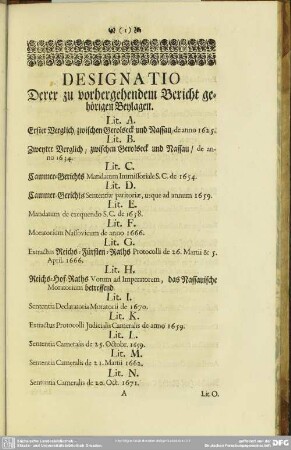 (1)
DESIGNATIO
Derer zu vorhergehendem Bericht ge-
hörigen Beylagen.
Lit. A.
Erster Verglich, zwischen Gerolseck und Nassau, de anno 1625.
Lit. B.
Zweyter Verglich, zwischen Gerolseck und Nassau, de an-
no 1634.
Lit. C.
Cammer-Gerichts Mandatum Immissoriale S. C. de 1654.
Lit. D.
Cammer-Gerichts Sententiæ paritoriæ, usque ad annum 1659.
Lit. E.
Mandatum de exequendo S. C. de 1658.
Lit. F.
Moratorium Nassovicum de anno 1666.
Lit. G.
Extractus Reichs-Fürsten-Raths Protocolli de 26. Martii & 5.
April. 1666.
Lit. H.
Reichs-Hof-Raths Votum ad Imperatorem, das Nassauische
Moratorium betreffend.
Lit. I.
Sententia Declaratoria Moratorii de 1670.
Lit. K.
Extractus Protocolli Judicialis Cameralis de anno 1659.
Lit. L.
Sententia Cameralis de 25. Octobr. 1659.
Lit. M.
Sententia Cameralis de 21. Martii 1662.
Lit. N.
Sententia Cameralis de 20. Oct. 1671.
A Lit. O.